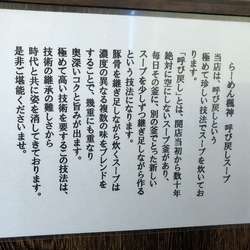 らーめん楓神　呼び戻しスープ
当店は、呼び戻しという
極めて珍しい技法でスープを炊いてお
ります。
「呼び戻し」とは、開店当初から数十年
絶対に空にしないスープ釜があり、
毎日その釜に、別の釜でとった新しい
スープを少しずつ継ぎ足しながら作る
という技法になります。
豚骨を継ぎ足しながら炊くスープは
濃度の異なる複数の味をブレンドを
することで、幾重にも重なり
奥深いコクと旨みが出ます。
極めて高い技術を要するこの技法は、
技術の継承の難しさから
時代と共に姿を消してきております。
是非ご堪能くださいませ。